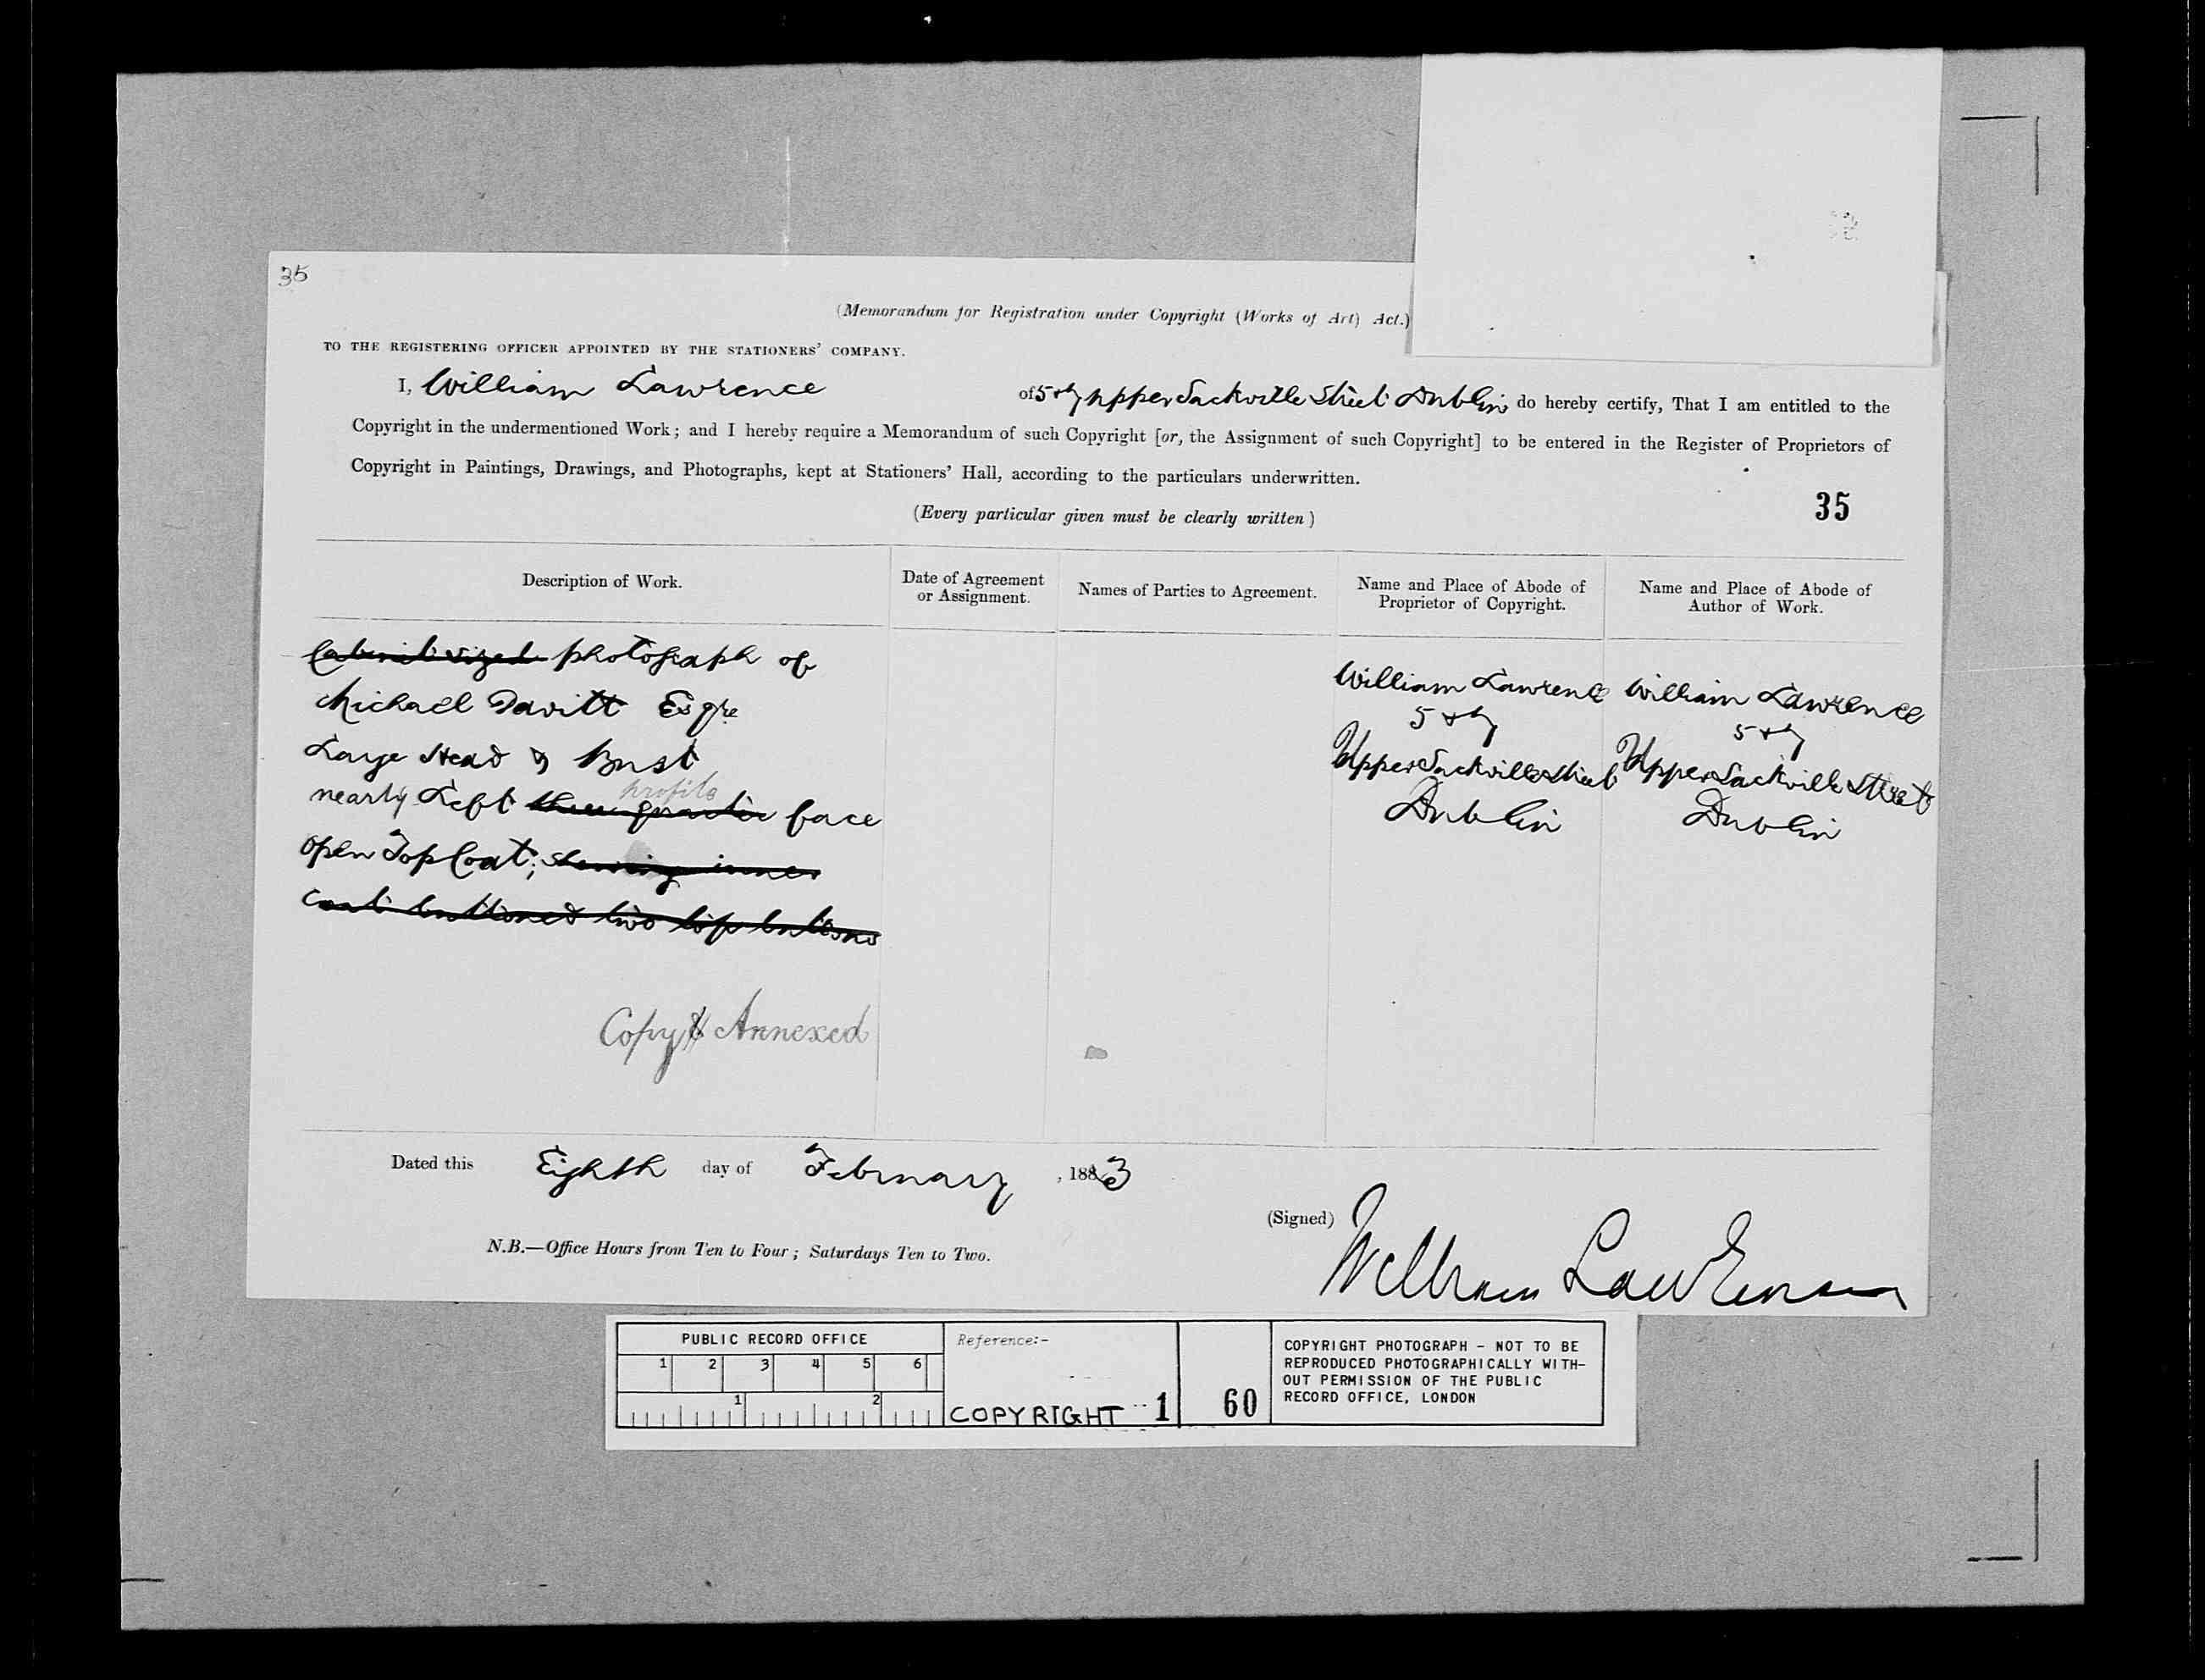 35
(Memorandum for Registration under Copyright (Works of Art) Act.)
TO THE REGISTERING OFFICER APPOINTED BY THE STATIONERS' COMPANY.
I, William Lawrence of 5 & 7 Upper Sackville Street Dublin do hereby certify, That I am entitled to the
Copyright in the undermentioned Work; and I hereby require a Memorandum of such Copyright [or, the Assignment of such Copyright] to be entered in the Register of Proprietors of
Copyright in Paintings, Drawings, and Photographs, kept at Stationers' Hall, according to the particulars underwritten.
35
(Every particular given must be clearly written)
Description of Work.
Date of Agreement
or Assignment.
Names of Parties to Agreement.
Name and Place of Abode of
Proprietor of Copyright.
Name and Place of Abode of
Author of Work.
Cabinet sized photograph of
Michael Davitt Esqre
Large Head & Bust
profile
nearly Left three quarter face
open Top Coat; showing inner
coat buttoned two top buttons
Copy Annexed
William Lawrence
5 & 7
Upper Sackville Street
Dublin
William Lawrence
5 & 7
Upper Sackville Street
Dublin
Dated this Eighth day of February, 1883
(Signed) William Lawrence
N.B.—Office Hours from Ten to Four; Saturdays Ten to Two.
PUBLIC RECORD OFFICE
1 2 3 4 5 6
1 2
Reference:-
COPYRIGHT 1
60
COPYRIGHT PHOTOGRAPH - NOT TO BE
REPRODUCED PHOTOGRAPHICALLY WITH-
OUT PERMISSION OF THE PUBLIC
RECORD OFFICE, LONDON